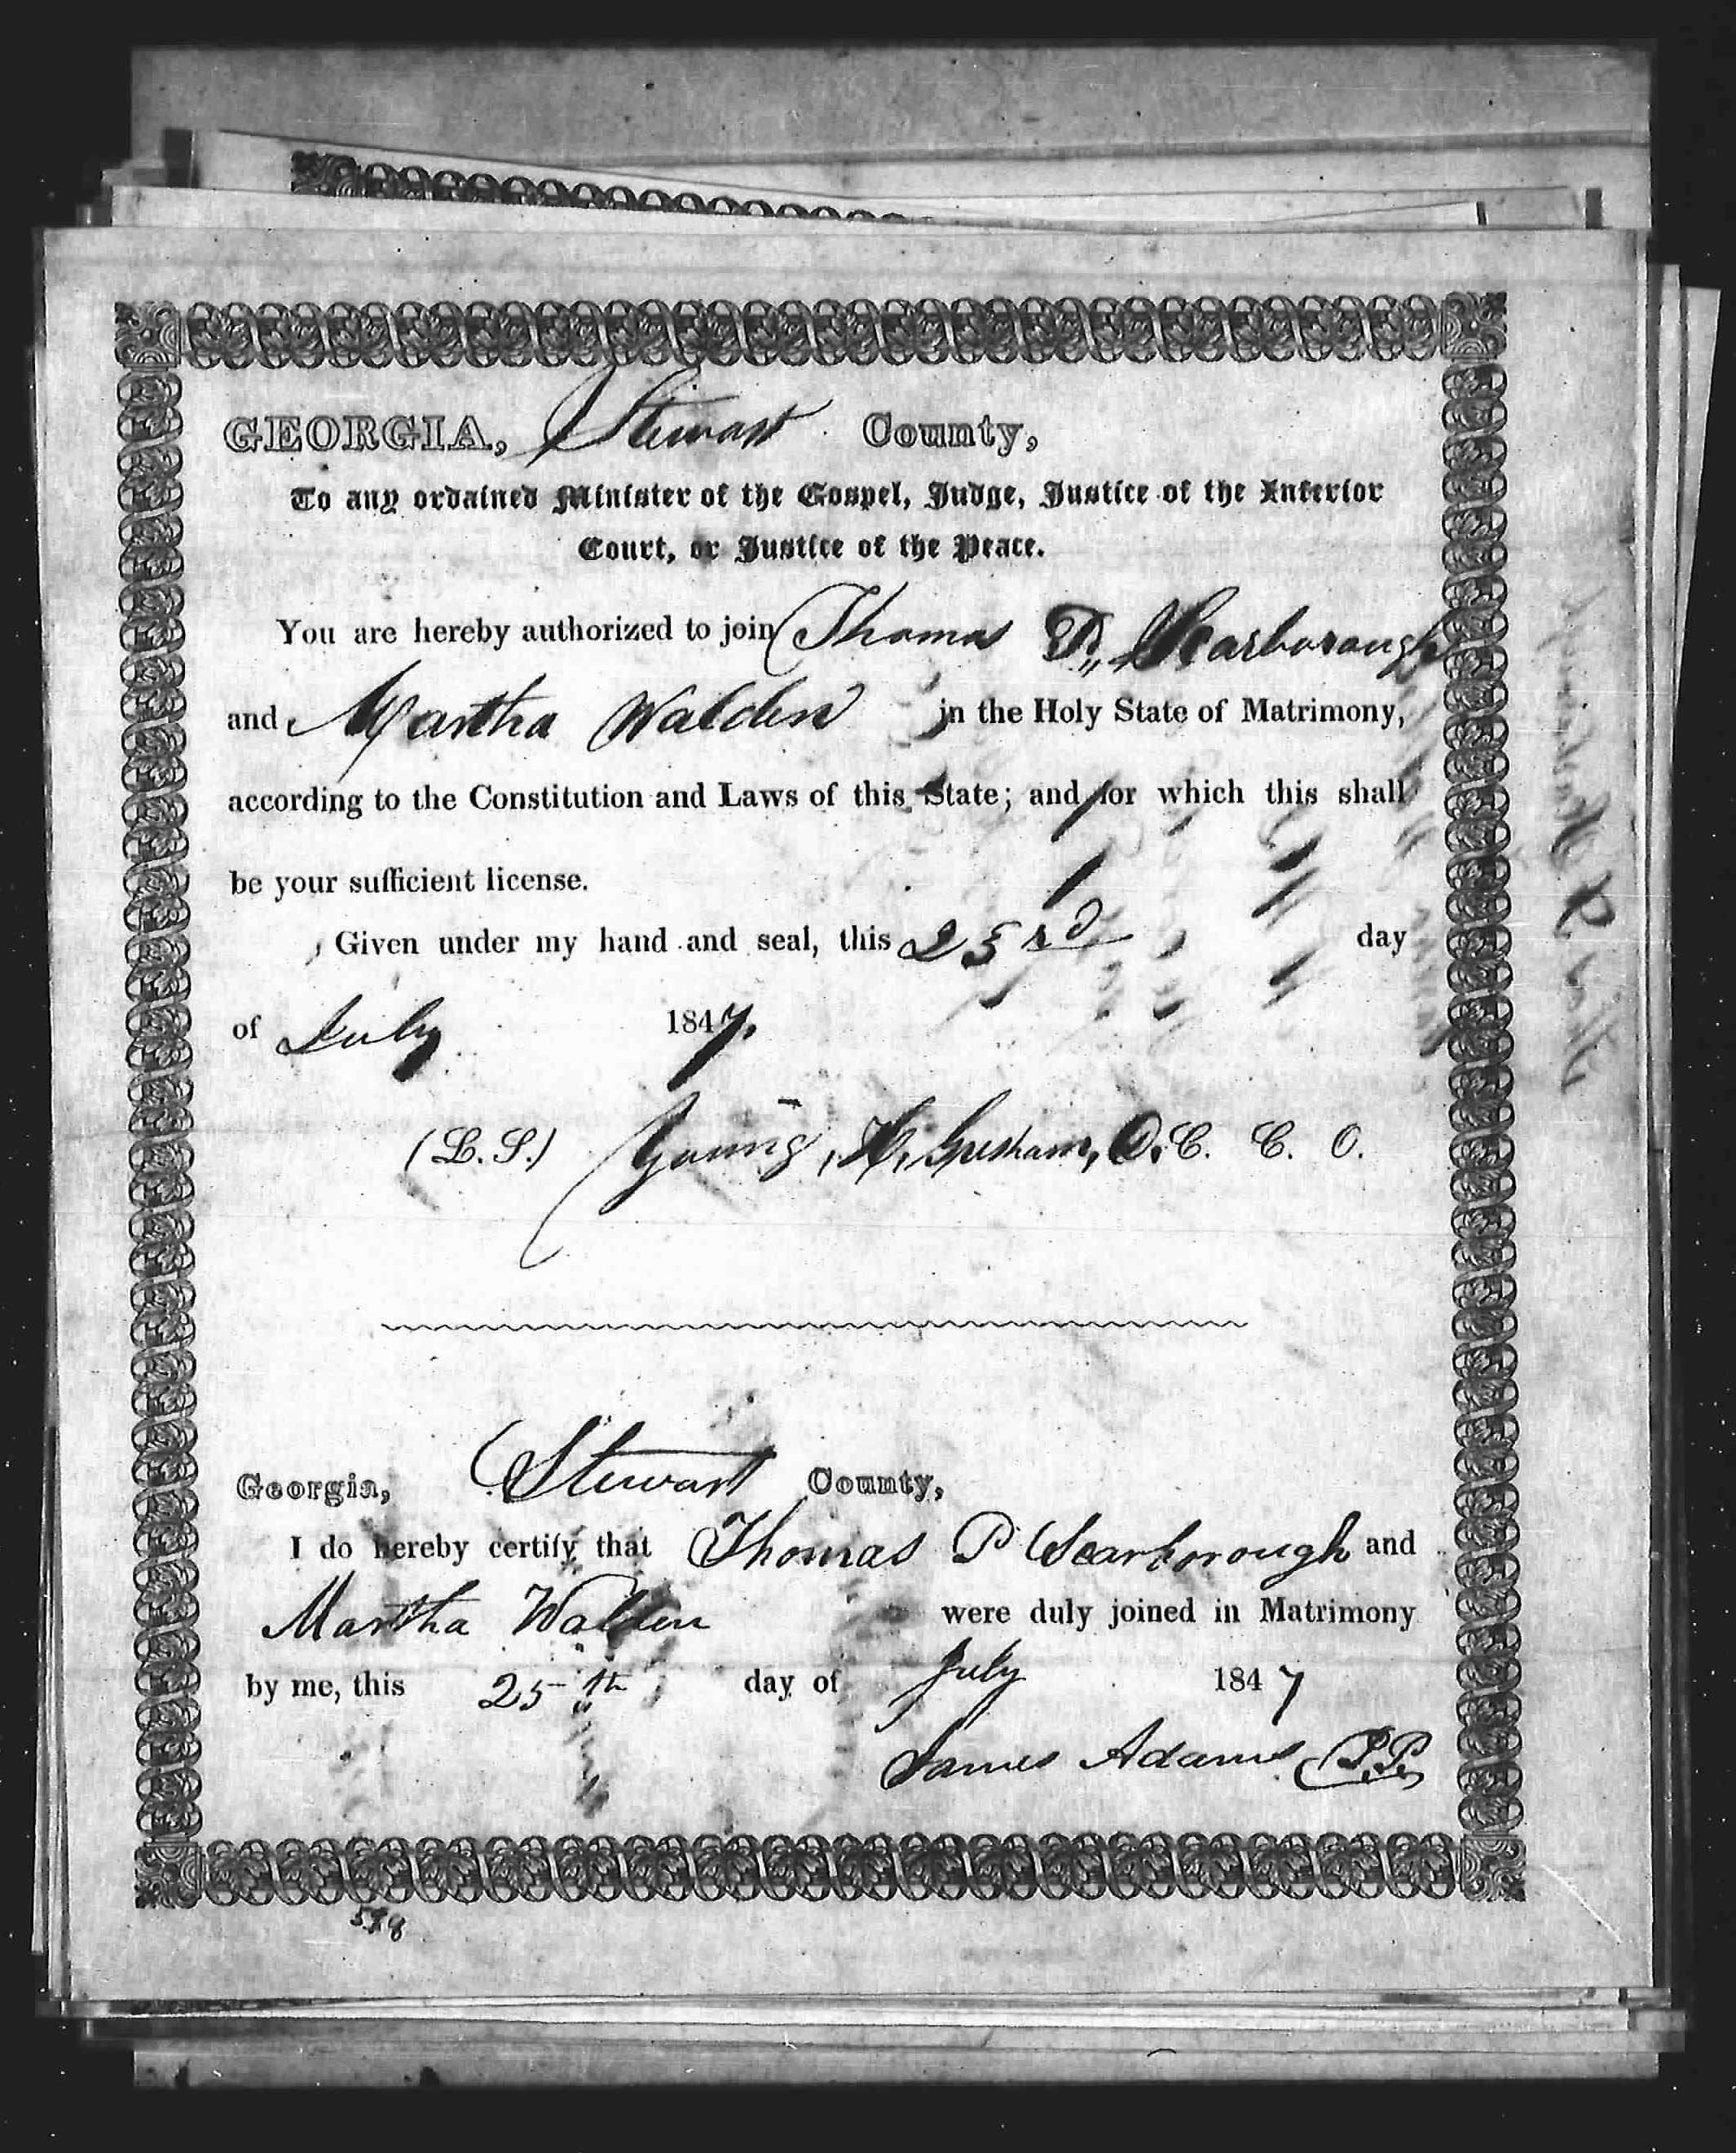 GEORGIA, Stewart County,
To any ordained Minister of the Gospel, Judge, Justice of the Inferior
Court, or Justice of the Peace.
You are hereby authorized to join Thomas P. Scarborough
and Martha Walden in the Holy State of Matrimony,
according to the Constitution and Laws of this State; and for which this shall
be your sufficient license.
Given under my hand and seal, this 23rd day
of July 1847.
(L. S.) Young, H, Gresham, D. C. C. O.
Georgia, Stewart County,
I do hereby certify that Thomas P Scarborough and
Martha Walden were duly joined in Matrimony
by me, this 25th day of July 1847
James Adams J.P.